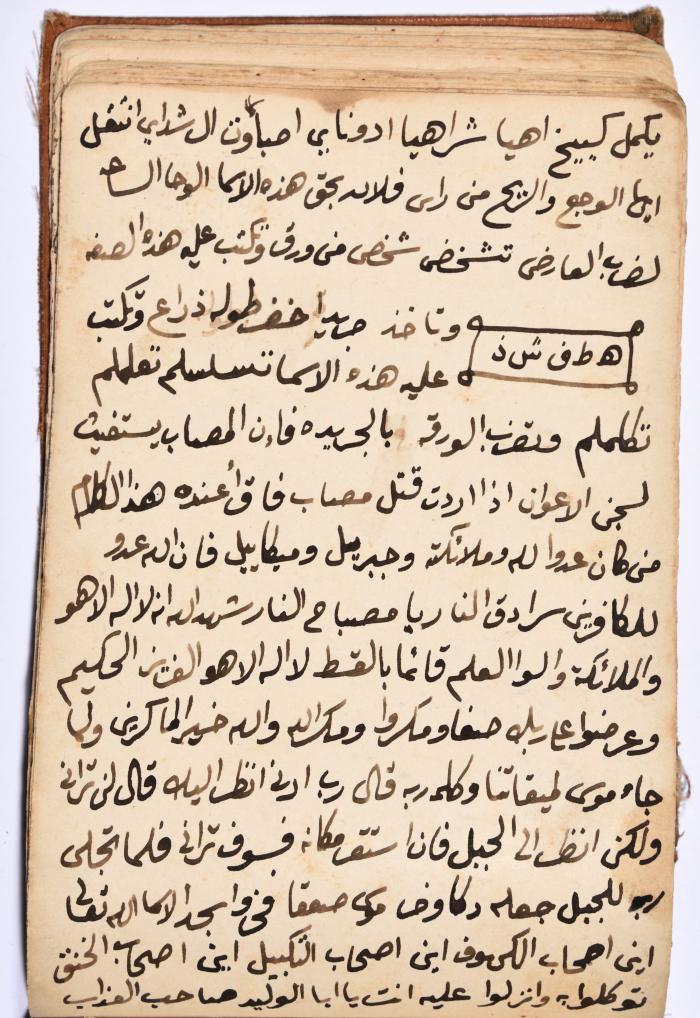 يكمل كييخ اهيا شراهيا ادوناي اصبأوت ال شداي انتقل
ايها الوجع والريح من راس فلانه بحق هذه الاسما الوحا الساعه
لضرب العارض تشخض شخص من ورق وتكتب عليه هذه الصفه
وتاخذ جريدا خضر طوله اذراع وتكتب
ه ط ف ش ذ
عليه هذه الاسما تسلسلم تعلملم
تكلملم وتضرب الورقه بالجريده فان المصاب يستغيث
لسجن الاعوان اذا اردت قتل مصاب فاقرأ عنده هذا الكلام
من كان عدوا لله وملائكته وجبريل وميكاييل فان الله عدو
للكافرين سرادق النار يا مصباح النار شهد الله انه لا اله الا هو
والملائكة والوا العلم قائما بالقسط لا اله الا هو العزيز الحكيم
وعرضوا على ربك صفا ومكروا ومكر الله والله خير الماكرين ولما
جاء موسى لميقاتنا وكلمه ربه قال رب ارني انظر اليك قال لن تراني
ولكن انظر الى الجبل فان استقر مكانه فسوف تراني فلما تجلى
ربه للجبل جعله دكا وخر موسى صعقا الله تعالى
اين اصحاب الكهوف اين اصحاب التكبيل اين اصحاب الخنق
توكلوا به وانزلوا عليه انت يا ابا الوليد صاحب العذاب